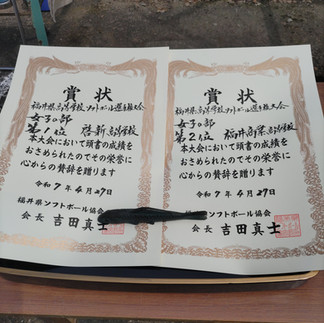 賞状
福井県高等学校ソフトボール選手権大会
女子の部
第1位 啓新高等学校
本大会において頭書の成績を
おさめられたのでその栄誉に
心からの賛辞を贈ります
令和7年4月29日
福井県ソフトボール協会
会長 吉田真士
賞状
福井県高等学校ソフトボール選手権大会
女子の部
第2位 福井商業高等学校
本大会において頭書の成績を
おさめられたのでその栄誉に
心からの賛辞を贈ります
令和7年4月29日
ソフトボール協会
会長 吉田真士